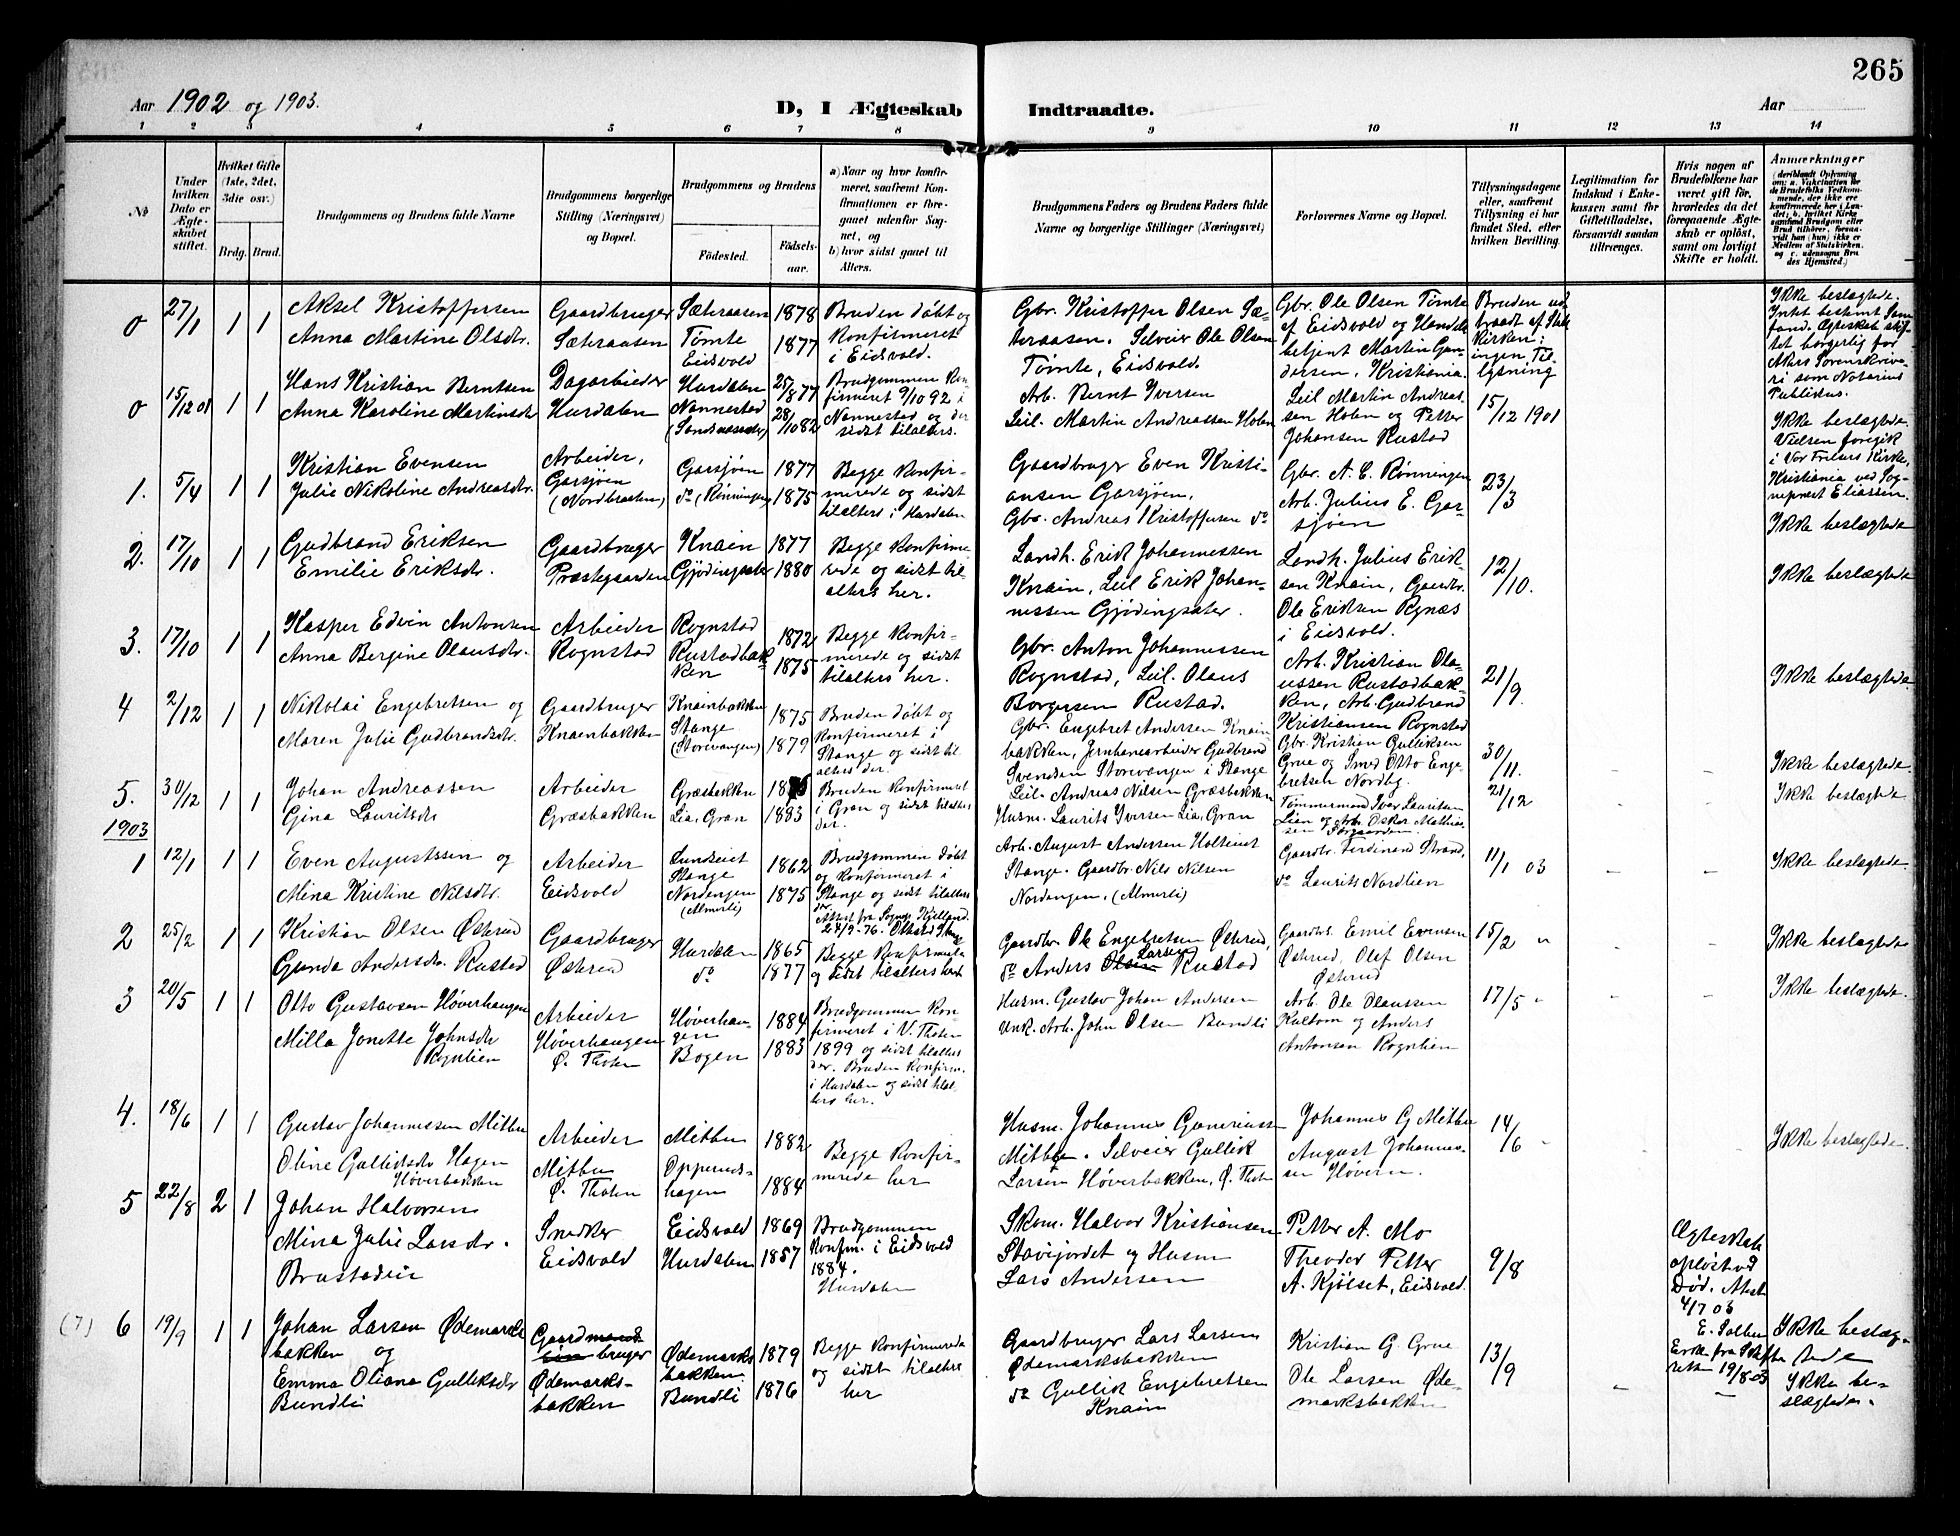 265
Aar 1902 og 1903.
D, I Ægteskab Indtraadte.
Aar
1 2 3 4 5 6 7 8 9 10 11 12 13 14
No
Under hvilken Dato er Ægteskabet stiftet.
Hvilket Gifte (1ste, 2det, 3die osv.)
Brdg. Brud.
Brudgommens og Brudens fulde Navne
Brudgommens borgerlige Stilling (Næringsvei) og Bopæl.
Brudgommens og Brudens
Fødested.
Fødselsaar.
a) Naar og hvor konfirmeret, saafremt Konfirmationen er foregaaet udenfor Sognet, og
b) hvor sidst gaaet til Alters.
Brudgommens Faders og Brudens Faders fulde Navne og borgerlige Stillinger (Næringsvei)
Forlovernes Navne og Bopæl.
Tillysningsdagene eller, saafremt Tillysning ei har fundet Sted, efter hvilken Bevilling.
Legitimation for Indskud i Enkekassen samt for Giftetilladelse, forsaavidt saadan tiltrænges.
Hvis nogen af Brudefolkene har været gift før, hvorledes da det foregaaende Ægteskab er opløst, samt om lovligt Skifte er holdt.
Anmærkninger (deriblandt Oplysning om: a. Vakcination for de Brudefolks Vedkommende, der ikke ere konfirmerede her i Landet; b. hvilket Kirkesamfund Brudgom eller Brud tilhører, forsaavidt han (hun) ikke er Medlem af Statskirken, og c. udensogns Brudes Hjemsted.)
0 27/1 1 1
Aksel Kristoffersen
Anna Martine Olsdr.
Gaardbruger
Sæteraasen
Sæteraasen 1878
Tømte
Eidsvold 1877
Bruden døbt og
konfirmeret
i Eidsvold.
Gbr. Kristoffer Olsen Sæ-
teraasen. Selveier Ole Olsen
Tømte, Eidsvold.
Gbr. Ole Olsen Tømte
af Eidsvold og Handels
betjent Martin Gun-
dersen, Kristiania.
Bruden ud
traadt af Stats
kirken;
ingen Til-
lysning
Ikke beslægtede.
Intet bestemt Sam-
fond. Ægteskab stif-
tet borgerlig for
Akers Sorenskrive-
ri som Notarius
Publikus.
0 15/12 01 1 1
Hans Kristian Berntsen
Anna Karoline Martinsdr
Dagarbeider
Hurdalen
Hurdalen 25/8 77
Nannestad 28/10 82
Brudgommen kon-
firmeret 9/10 92 i
Nannestad og der
sidst tilalters.
Arb. Bernt Iversen
Leil. Martin Andreassen Holen
Leil Martin Andreas-
sen Holen og Petter
Johansen Rustad
15/12 1901
Ikke beslægtede
Vielsen foregik
i Vor Frelsers Kirke,
Kristiania ved Sog-
neprest Eliassen.
1. 5/4 1 1
Kristian Evensen
Julie Nikoline Andreasdr.
Arbeider,
Garsjøen
(Nordbraaten)
Garsjøen 1877
do (Rønningen) 1875
Begge konfir-
merede og sidst
tilalters i Hurdalen
Gaardbruger Even Kristi-
ansen Garsjøen,
Gbr. Andreas Kristoffersen do
Gbr. A. C. Rønningen
Arb. Julius E. Gar-
sjøen
23/3
Ikke beslægtede
2. 17/10 1 1
Gudbrand Eriksen
Emilie Eriksdr.
Gaardbruger
Præstegaarden
Knain 1877
Gjødingsæter 1880
Begge konfirme-
rede og sidst til-
alters her.
Landh. Erik Johannessen
Knain, Leil Erik Johan-
nessen Gjødingsæter.
Landh. Julius Erik-
sen Knain, Gaardbr.
Ole Eriksen Rognæs
i Eidsvold.
12/10.
Ikke beslægtede
3. 17/10 1 1
Kasper Edvin Antonsen
Anna Bergine Olausdr.
Arbeider
Rognstad
Rognstad 1872
Rustadbak-
ken 1875
Begge konfir-
merede og sidst
tilalters her.
Gbr. Anton Johannessen
Rognstad, Leil. Olaus
Borgersen Rustad.
Arb. Kristian Ola-
ussen Rustadbak-
ken, Arb. Gudbrand
Kristiansen Rognstad
21/9.
Ikke beslægtede.
4 2/12 1 1
Nikolai Engebretsen og
Maren Julie Gudbrandsdr.
Gaardbruger
Knaenbakken
Knainbakken 1875
Stange
(Storevangen) 1879
Bruden døbt og
konfirmeret i
Stange og sidst til-
alters der.
Gbr. Engebret Andersen Knain
bakken, Jernbanearbeider Gudbrand
Svendsen Storevangen i Stange
Gbr. Kristian Gulliksen
Grue og Smed Otto Enge-
bretsen Nordby.
30/11.
Ikke beslægtede.
5. 30/12 1 1
Johan Andreassen
Gina Lauritsdr
Arbeider
Græsbakken
Græsbakken 1876
Lia, Gran 1883
Bruden konfirmeret
i Gran og sidst tilalters
der.
Leil. Andreas Nilsen Græsbakken
Husm. Laurits Iversen Lia, Gran
Tømmermand Iver Lauritsen
Lien og Arb. Oskar Mathis-
sen Sørgaarden.
21/12
Ikke beslægtede
1903
1 12/1 1 1
Even Augustssen og
Mina Kristine Nilsdr.
Arbeider
Eidsvold
Stange 1862
Nordengen 1875
(Almerli)
Brudgommen døbt
og konfirmeret i
Stange og sidst tilalters
der.
Attest fra Sognep. Kjelland
24/9-76.
Arb. August Andersen
Stange. Gaardbr. Nils Nilsen
Nordengen, (Almerli)
Gaardbr. Ferdinand Strand,
do Laurits Nordlien
11/1 03
Ikke beslægtede.
2 25/2 1 1
Kristian Olsen Østerud
Gunda Andersdr. Rustad
Gaardbruger
Østerud
Hurdalen 1865
do 1877
Begge konfirmerte
og sidst tilalters her
Gaardbr. Ole Engebretsen Østerud,
do Anders Olsen Larsen Rustad
Gaardbr. Emil Evensen
Østerud, Olef Olsen
Østerud
15/2 "
Ikke beslægtede
3 20/5 1 1
Otto Gustavsen Høverhaugen
Milla Jonette Johnsdr
Rognlien
Arbeider
Høverhaugen
Ø. Thoten
Høverhau-
gen 1884
Bogen 1883
Brudgommen kon-
firmeret i V. Thoten
1899 og sidst tilalters
der. Bruden konfirm.
i Hurdalen og sidst tilal-
ters her.
Husm. Gustav Johan Andersen
Unk. Arb. John Olsen Bundli
Arb. Ole Olaussen
Kultom og Anders
Antonsen Rognlien
17/5 "
Ikke beslægtede.
4. 18/6 1 1
Gustav Johannessen Mitbu
Oline Gulliksdr Hagen
Høverbakken
Arbeider
Mitbu
Ø. Thoten
Mitbu 1882
Oppenes-
hagen 1884
Begge konfir-
merede her
Husm. Johannes Generiuss
Mitbu. Selveier Gullik
Larsen Høverbakken, Ø. Thoten
Johannes G Mitbu
August Johannes-
sen Høvern.
14/6
Ikke beslægtede.
5 22/8 2 1
Johan Halvorsen
Mina Julie Larsdr.
Brustadeie
Snedker
Eidsvold
Eidsvold 1869
Hurdalen 1857
Brudgommen
konfirm. i Eidsvold
1884.
Hurdalen
Skom. Halvor Kristiansen
Stavijordet og Husm
Lars Andersen
Petter A. Mo
Theodor Petter
A. Kjølset, Eidsvold.
9/8
Ægteskab
opløst ved
Død. Attest
4/7 03
Erkl. fra Skifte
retten 19/8 03
Ikke beslæg-
tede
(7) 6 19/9 1 1
Johan Larsen Ødemarks
bakken og
Emma Oliana Gulliksdr
Bundli
Gaardmand
bruger
Ødemarks-
bakken
Ødemarks
bakken 1879
Bundli 1876
Begge konfirmerede
og sidst tilalters
her
Gaardbruger Lars Larsen
Ødemarksbakken
do Gullik Engebretsen
Knain
Kristian G. Grue
Ole Larsen Øde-
marksbakken
13/9
Ikke be-
slægtede.